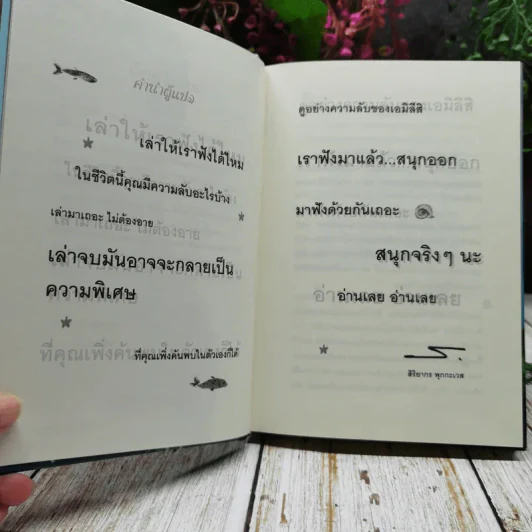 คำนำผู้แปล
เล่าให้เราฟังได้ไหม
ในชีวิตนี้คุณมีความลับอะไรบ้าง
เล่ามาเถอะ ไม่ต้องอาย
เล่าจบมันอาจจะกลายเป็น
ความพิเศษ
ที่คุณเพิ่งค้นพบในตัวเองก็ได้
ดูอย่างความลับของเอมิลีสิ
เราฟังมาแล้ว...สนุกออก
มาฟังด้วยกันเถอะ
สนุกจริงๆ นะ
อ่านเลย อ่านเลย
สิริยากร พุกกะเวส